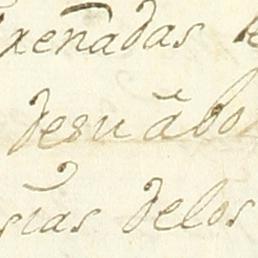 xenādas
desu ābo
sias delos